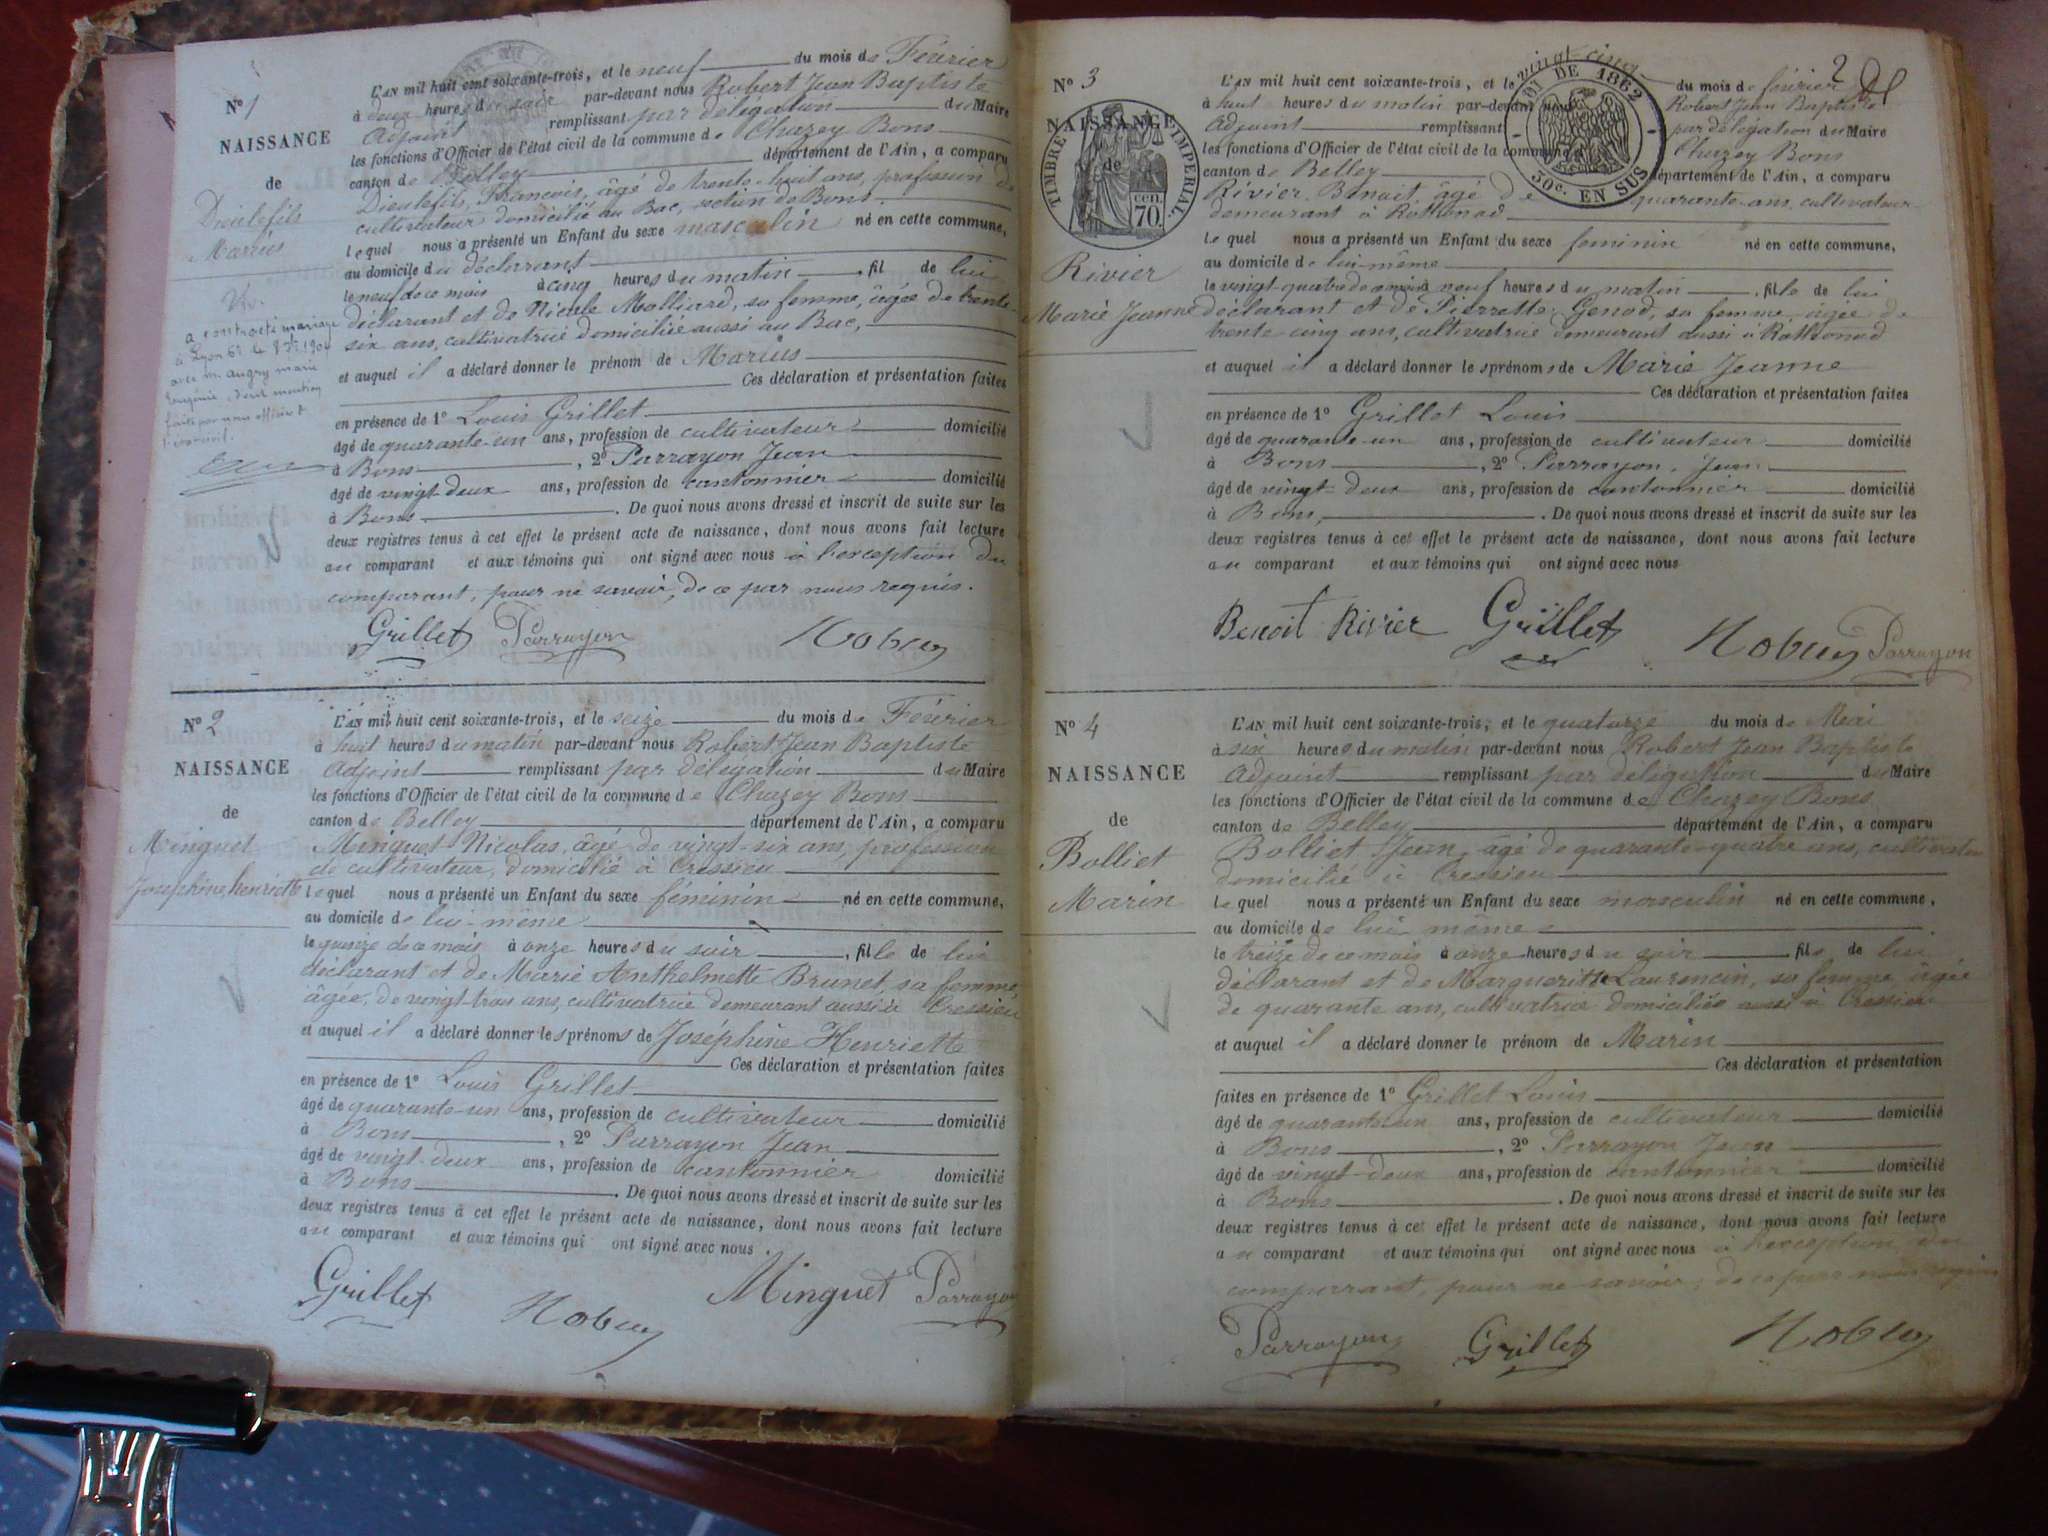 N° 1
NAISSANCE
de
Dieulefils
Marius
a contracté mariage
à Lyon 6e le 1904
avec Augry marie
Eugénie, dont mention
faite par nous officier d
L'AN mil huit cent soixante-trois, et le neuf du mois de Février
à deux heures du soir par-devant nous Robert Jean Baptiste
Adjoint remplissant par délégation du Maire
les fonctions d'Officier de l'état civil de la commune de Chazey Bons
canton de Belley département de l'Ain, a comparu
Dieulefils, François, âgé de trente-huit ans, profession de
cultivateur domicilié au Bac, section de Bons.
lequel nous a présenté un Enfant du sexe masculin né en cette commune,
au domicile du déclarant
le neuf de ce mois à cinq heures du matin, fil de lui
déclarant et de Nicole Molliard, sa femme, âgée de trente-
six ans, cultivatrice domiciliée aussi au Bac,
et auquel il a déclaré donner le prénom de Marius
Ces déclaration et présentation faites
en présence de 1° Louis Grillet
âgé de quarante-un ans, profession de cultivateur domicilié
à Bons, 2° Parrayon Jean
âgé de vingt-deux ans, profession de cantonnier domicilié
à Bons. De quoi nous avons dressé et inscrit de suite sur les
deux registres tenus à cet effet le présent acte de naissance, dont nous avons fait lecture
au comparant et aux témoins qui ont signé avec nous à l'exception du
comparant, pour ne savoir, de ce par nous requis.
Grillet Parrayon Nobuy
N° 2
NAISSANCE
de
Minguet
Joséphine henriette
L'AN mil huit cent soixante-trois, et le seize du mois de Février
à huit heures du matin par-devant nous Robert Jean Baptiste
Adjoint remplissant par délégation du Maire
les fonctions d'Officier de l'état civil de la commune de Chazey Bons
canton de Belley département de l'Ain, a comparu
Minguet Nicolas, âgé de vingt-six ans, profession
de cultivateur, domicilié à Cressieu
lequel nous a présenté un Enfant du sexe féminin né en cette commune,
au domicile de lui-même
le quinze de ce mois à onze heures du soir, fille de lui
déclarant et de Marie Anthelmette Brunet, sa femme
âgée de vingt-trois ans, cultivatrice demeurant aussi à Cressieu
et auquel il a déclaré donner les prénoms de Joséphine Henriette
Ces déclaration et présentation faites
en présence de 1° Louis Grillet
âgé de quarante-un ans, profession de cultivateur domicilié
à Bons, 2° Parrayon Jean
âgé de vingt-deux ans, profession de cantonnier domicilié
à Bons. De quoi nous avons dressé et inscrit de suite sur les
deux registres tenus à cet effet le présent acte de naissance, dont nous avons fait lecture
au comparant et aux témoins qui ont signé avec nous.
Grillet Nobuy Minguet Parrayon
2
N° 3
NAISSANCE
de
TIMBRE IMPERIAL
CEN. 70.
DE 1862
50c. EN SUS
Rivier
Marie Jeanne
L'AN mil huit cent soixante-trois, et le vingt-cinq du mois de février
à huit heures du matin par-devant nous Robert Jean Baptiste
Adjoint remplissant par délégation du Maire
les fonctions d'Officier de l'état civil de la commune de Chazey Bons
canton de Belley département de l'Ain, a comparu
Rivier Benoit âgé de quarante-ans, cultivateur
demeurant à Rothonod
lequel nous a présenté un Enfant du sexe feminin né en cette commune,
au domicile de lui-même
le vingt-quatre de ce mois à neuf heures du matin, fille de lui
déclarant et de Pierrette Genod, sa femme, âgée de
trente cinq ans, cultivatrice demeurant aussi à Rothonod
et auquel il a déclaré donner les prénoms de Marie Jeanne
Ces déclaration et présentation faites
en présence de 1° Grillet Louis
âgé de quarante-un ans, profession de cultivateur domicilié
à Bons, 2° Parrayon, Jean
âgé de vingt-deux ans, profession de cantonnier domicilié
à Bons,. De quoi nous avons dressé et inscrit de suite sur les
deux registres tenus à cet effet le présent acte de naissance, dont nous avons fait lecture
au comparant et aux témoins qui ont signé avec nous
Benoit Rivier Grillet Nobuy Parrayon
N° 4
NAISSANCE
de
Bolliet
Marin
L'AN mil huit cent soixante-trois, et le quatorze du mois de Mai
à six heures du matin par-devant nous Robert Jean Baptiste
Adjoint remplissant par délégation du Maire
les fonctions d'Officier de l'état civil de la commune de Chazey Bons
canton de Belley département de l'Ain, a comparu
Bolliet Jean, âgé de quarante-quatre ans, cultivateur
domicilié à Cressieu
lequel nous a présenté un Enfant du sexe masculin né en cette commune,
au domicile de lui même
le treize de ce mois à onze heures du soir fils de lui
déclarant et de Marguerite Laurencin, sa femme âgée
de quarante ans, cultivatrice domiciliée aussi à Cressieu
et auquel il a déclaré donner le prénom de Marin
Ces déclaration et présentation
faites en présence de 1° Grillet Louis
âgé de quarante un ans, profession de cultivateur domicilié
à Bons, 2° Parrayon Jean
âgé de vingt-deux ans, profession de cantonnier domicilié
à Bons. De quoi nous avons dressé et inscrit de suite sur les
deux registres tenus à cet effet le présent acte de naissance, dont nous avons fait lecture
au comparant et aux témoins qui ont signé avec nous à l'exception du
comparant, pour ne savoir, de ce par nous requis
Parrayon Grillet Nobuy